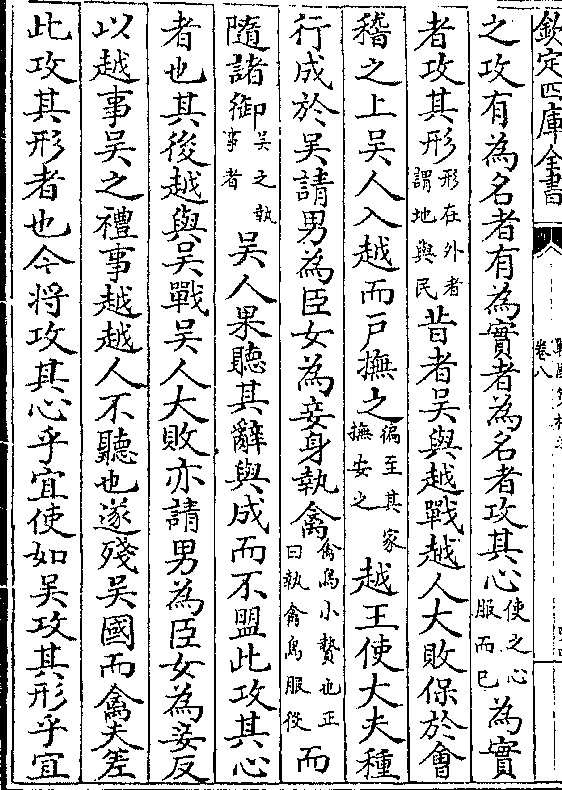 欽定四庫全書
卷八
之攻有為名者有為實者為名者攻其心使之心服而已為實
者攻其形形在外者謂地與民昔者吳與越戰越人大敗保於會
稽之上吳人入越而戶撫之徧至其家撫安之越王使大夫種
行成於吳請男為臣女為妾身執禽禽鳥小贄也正曰執禽鳥服役而
隨諸御吳之執事者吳人果聽其辭與成而不盟此攻其心
者也其後越與吳戰吳人大敗亦請男為臣女為妾反
以越事吳之禮事越越人不聽也遂殘吳國而禽夫差
此攻其形者也今將攻其心乎宜使如吳攻其形乎宜